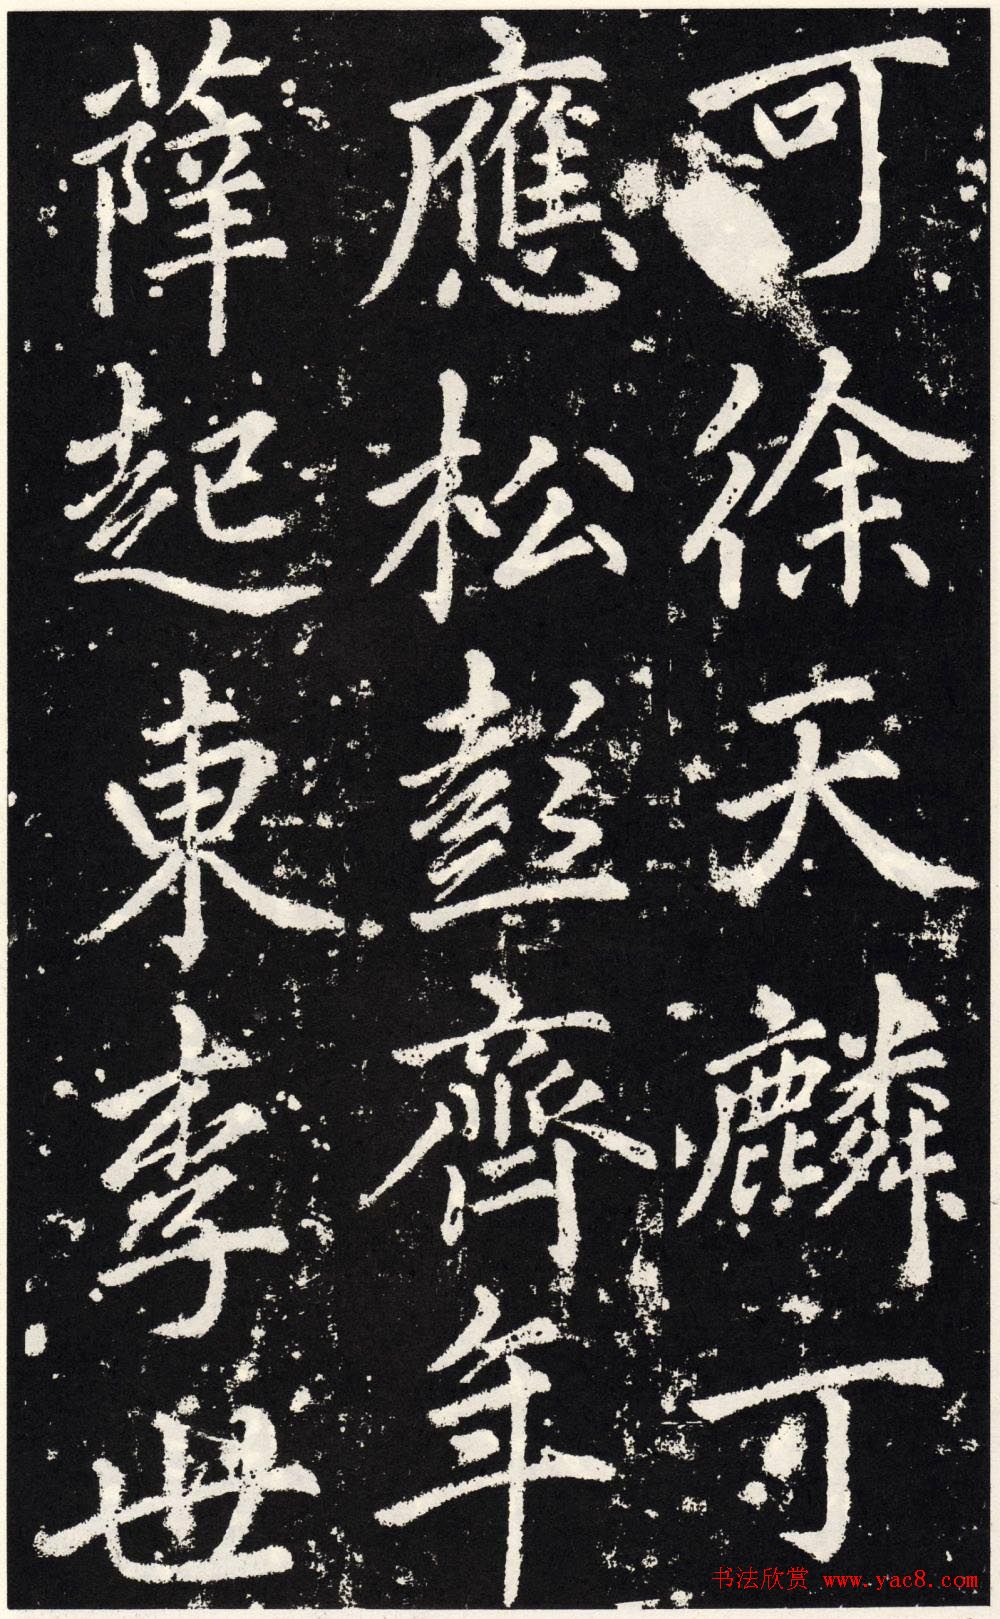 可徐天麟可
應松彭齊年
薛起東李世
书法欣赏 www.yac8.com